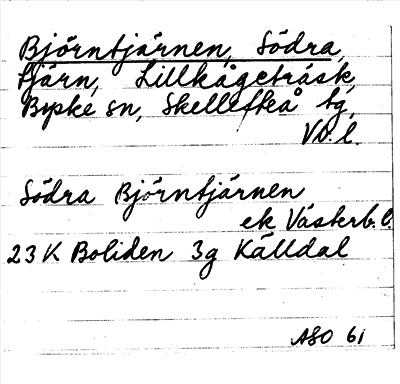 Björntjärnen, Södra,
tjärn, Lillkågeträsk,
Byske sn, Skellefteå tg,
Vb. l.
Södra Björntjärnen
ek Västerb. l.
23 K Boliden 3g Källdal
ASO 61